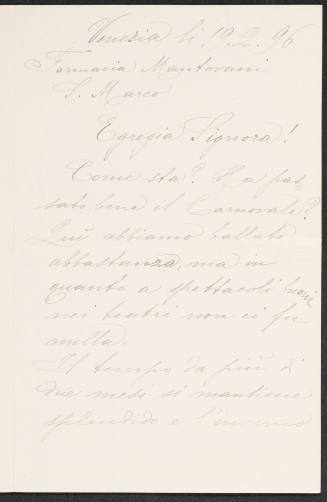 Venezia li 19.2.96
Farmacia Mantovani
S. Marco
Egregia Signora!
Come sta? Ha pas-
sato bene il Carnovale?
Quì abbiamo ballato
abbastanza, ma in
quanto a spettacoli buoni
nei teatri non ci fu
nulla.
Il tempo da più di
due mesi si mantiene
splendido e l'inverno